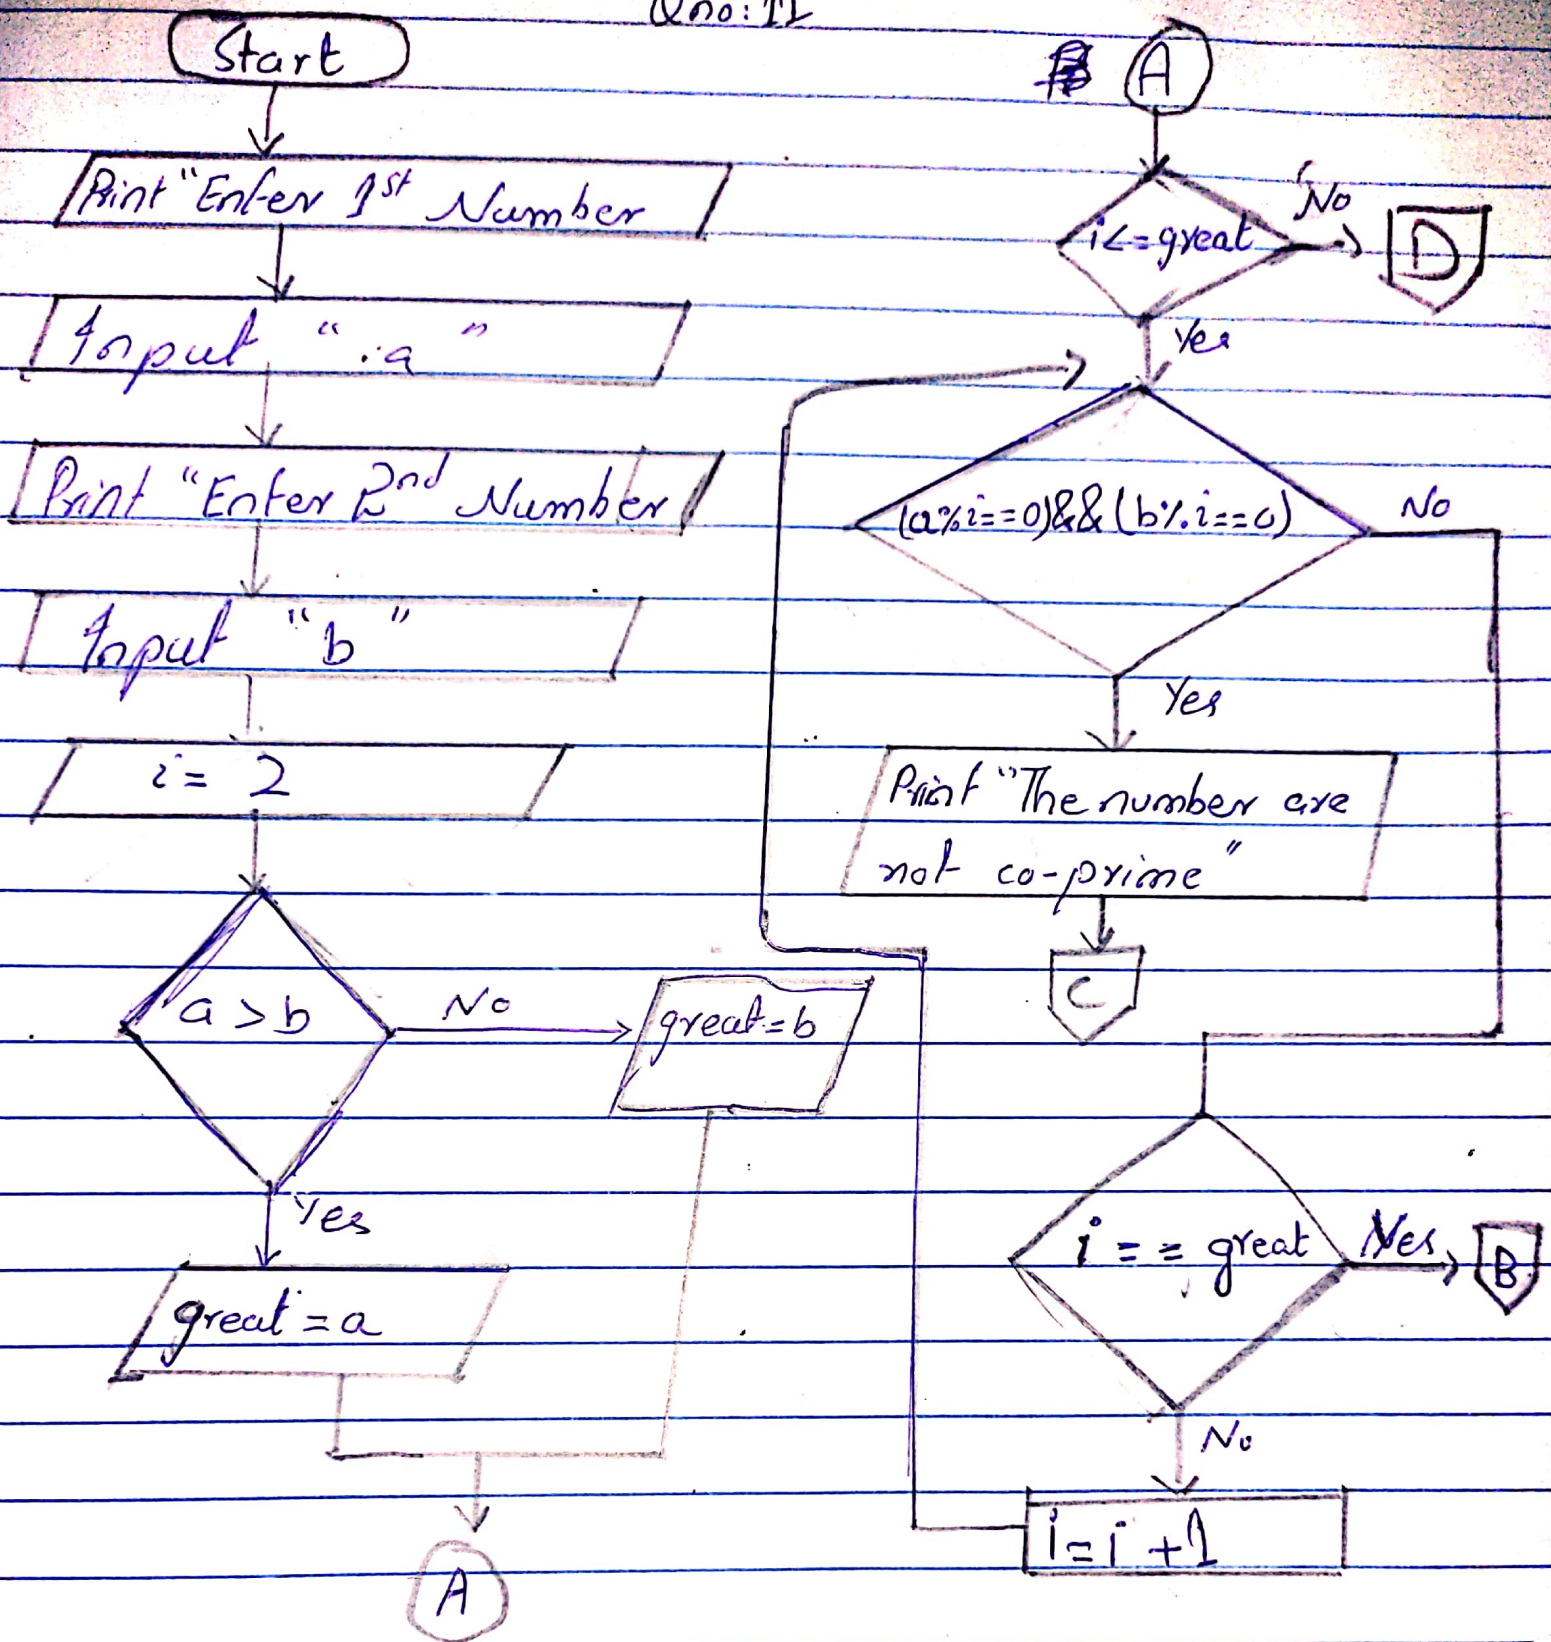 Qno: 11
Start
Print "Enter 1st Number
Input "a"
Print "Enter 2nd Number
Input "b"
i = 2
a > b
No
great = b
Yes
great = a
A
A
i <= great
No
D
Yes
(a%i==0)&&(b%i==0)
No
Yes
Print "The number are
not co-prime"
C
i == great
Yes
B
No
i = i + 1